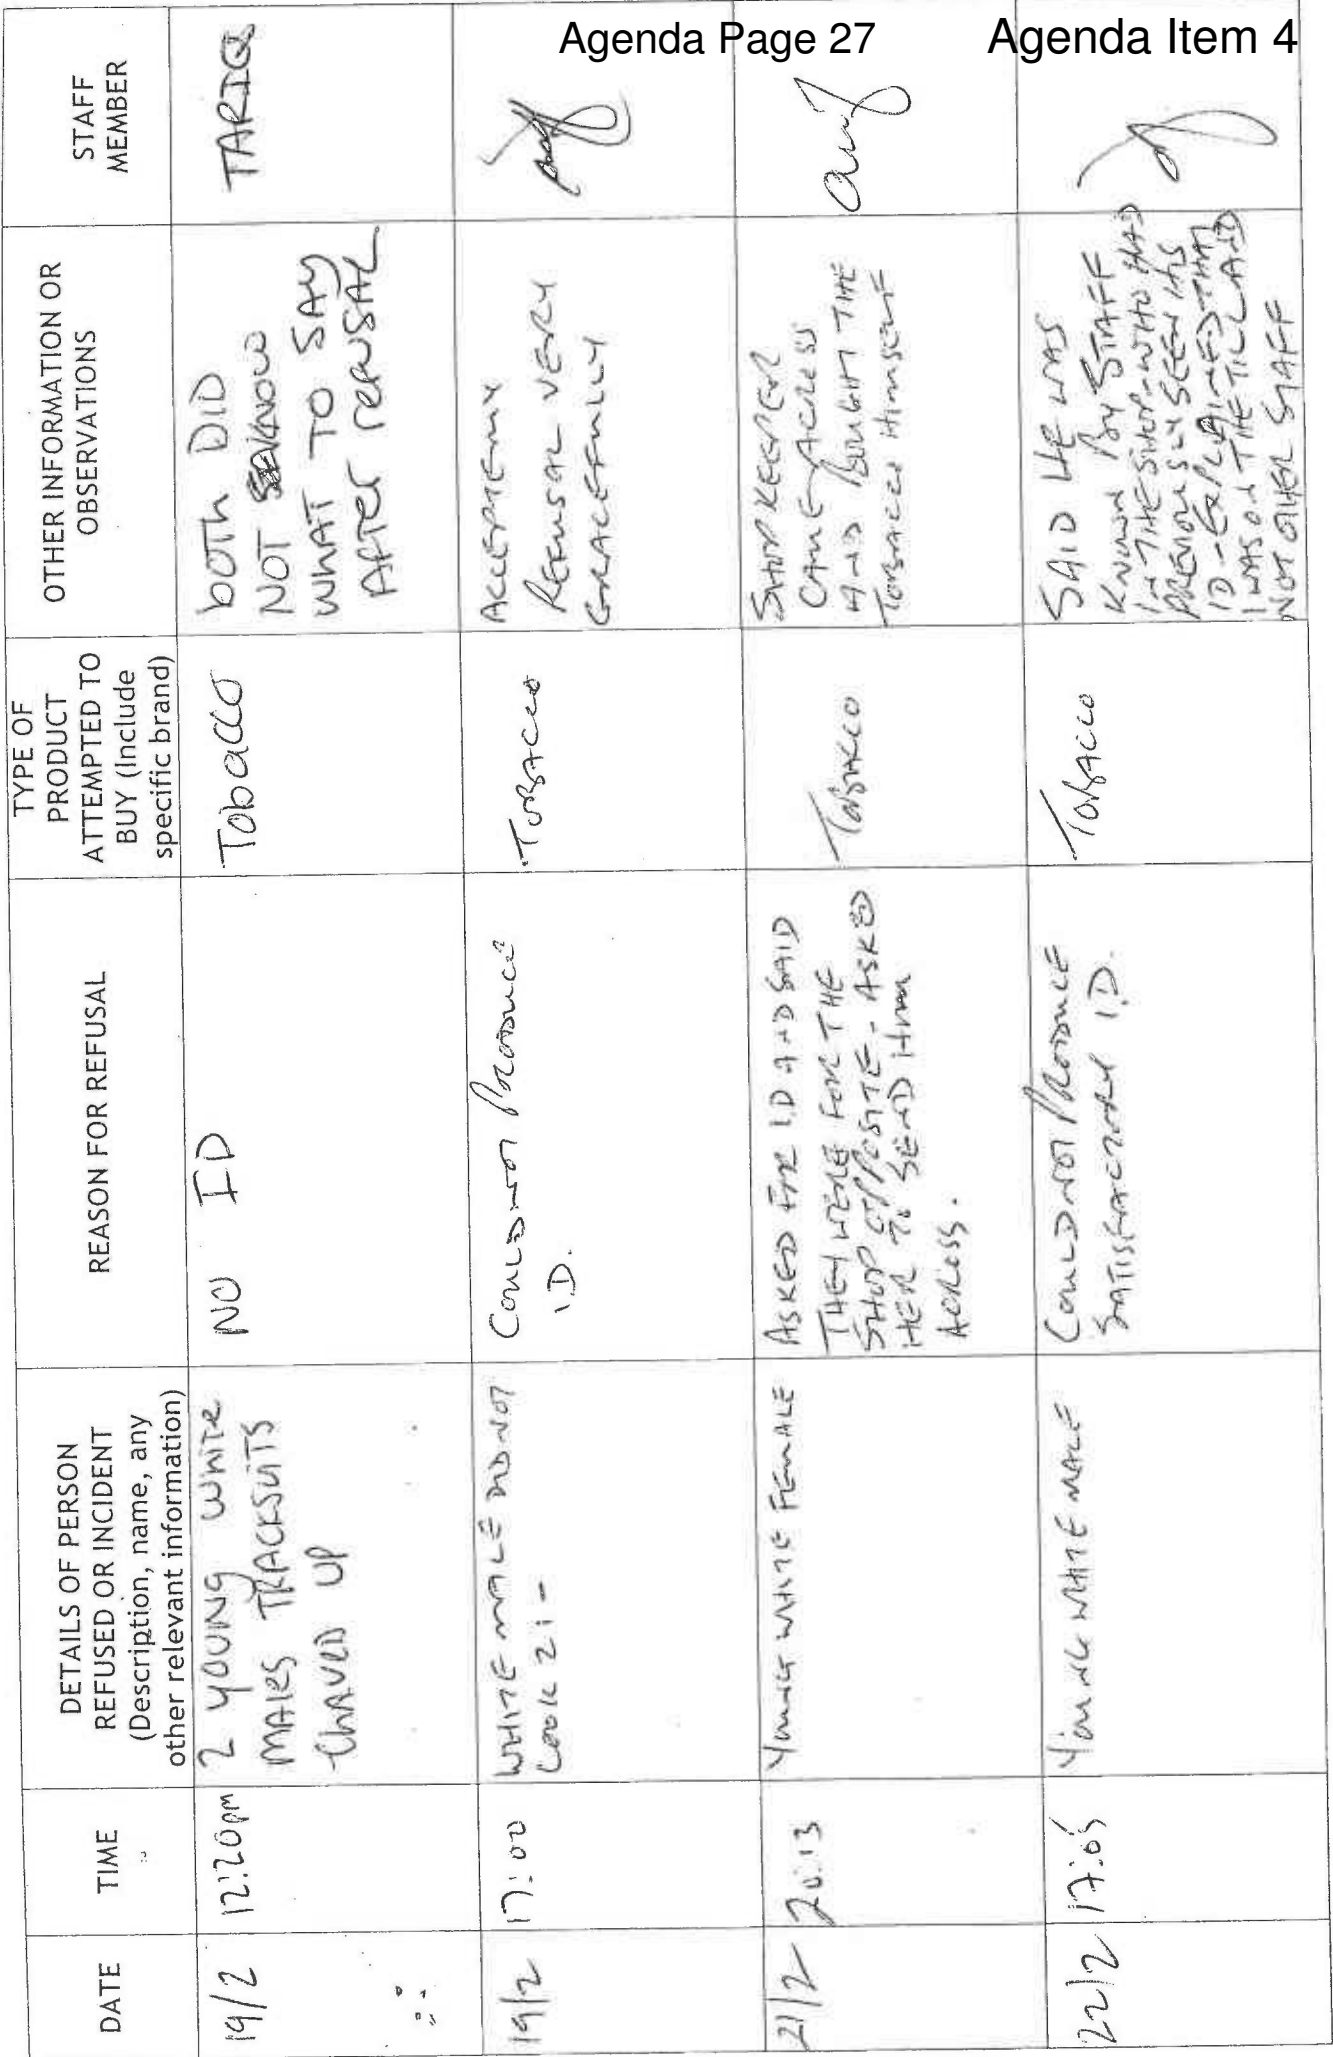 Agenda Page 27
Agenda Item 4
DATE
TIME
DETAILS OF PERSON
REFUSED OR INCIDENT
(Description, name, any
other relevant information)
REASON FOR REFUSAL
TYPE OF
PRODUCT
ATTEMPTED TO
BUY (Include
specific brand)
OTHER INFORMATION OR
OBSERVATIONS
STAFF
MEMBER
19/2
12:20pm
2 YOUNG WHITE
MALES TRACKSUITS
CHAVED UP
NO ID
Tobacco
BOTH DID
NOT KNOW
WHAT TO SAY
AFTER REFUSAL
TARIQ
19/2
17:00
WHITE MALE DID NOT
LOOK 21 -
COULD NOT PRODUCE
I.D.
TOBACCO
REFUSAL VERY
GRACEFULLY
21/2
20:13
YOUNG WHITE FEMALE
ASKED FOR I.D AND SAID
THEY WERE FOR THE
SHOP OPPOSITE - ASKED
HER TO SEND HIM
ACROSS.
TOBACCO
SHOP KEEPER
CAME ACROSS
AND BOUGHT THE
TOBACCO HIMSELF
22/2
17:05
YOUNG WHITE MALE
COULD NOT PRODUCE
SATISFACTORY I.D.
TOBACCO
SAID HE WAS
KNOWN BY STAFF
IN THE SHOP - WHO HAD
PREVIOUSLY SEEN HIS
ID - EXPLAINED THAT
I WAS ON THE TILL AND
NOT OTHER STAFF